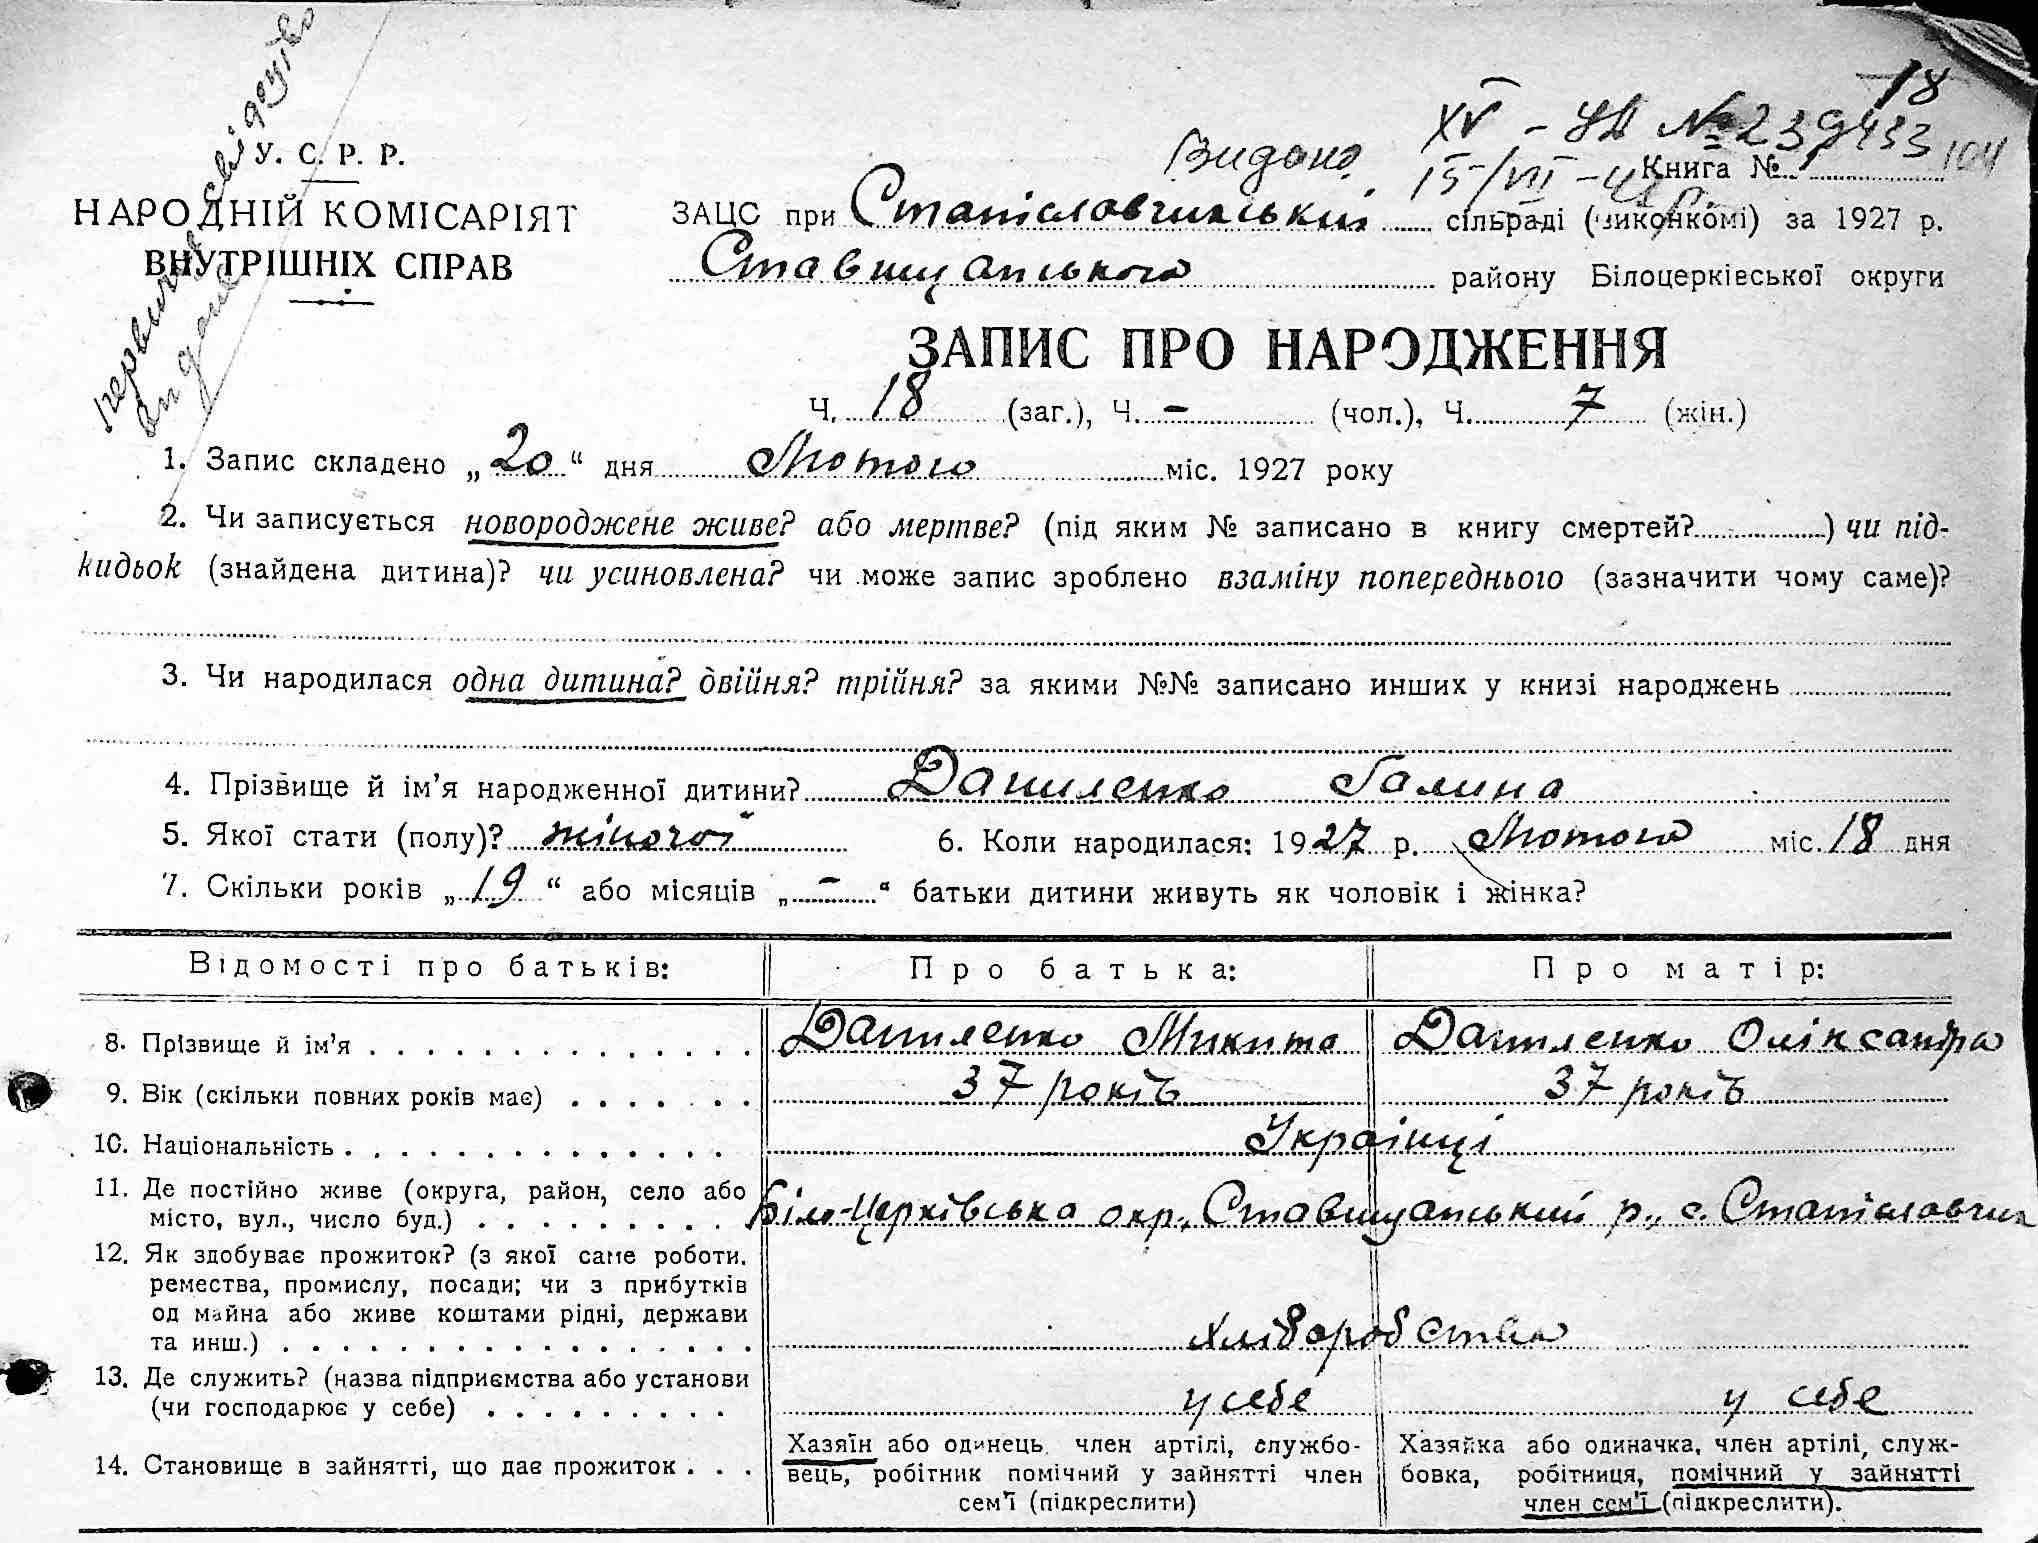 18
XV - УА № 239433
Видано
15/VII - 42 р.
104
первичне свідоцтво
У. С. Р. Р.
НАРОДНІЙ КОМІСАРІЯТ
ВНУТРІШНІХ СПРАВ
Книга №
ЗАЦС при Станіславчинський сільраді (виконкомі) за 1927 р.
Ставищанського району Білоцерківської округи
ЗАПИС ПРО НАРОДЖЕННЯ
Ч. 18 (заг.), Ч. - (чол.), Ч. 7 (жін.)
1. Запис складено „20“ дня Лютого міс. 1927 року
2. Чи записується новороджене живе? або мертве? (під яким № записано в книгу смертей?) чи під-
кидьок (знайдена дитина)? чи усиновлена? чи може запис зроблено взаміну попереднього (зазначити чому саме)?
3. Чи народилася одна дитина? двійня? трійня? за якими №№ записано инших у книзі народжень
4. Прізвище й ім’я народженної дитини? Даниленко Галина
5. Якої стати (полу)? жіночої 6. Коли народилася: 1927 р. Лютого міс. 18 дня
7. Скільки років „19“ або місяців „-“ батьки дитини живуть як чоловік і жінка?
Відомості про батьків: Про батька: Про матір:
8. Прізвище й ім’я Даниленко Микита Даниленко Оліксандра
9. Вік (скільки повних років має) 37 років 37 років
10. Національність Українці
11. Де постійно живе (округа, район, село або
місто, вул., число буд.) Біло-Церківська окр., Ставищанський р., с. Станіславчик
12. Як здобуває прожиток? (з якої саме роботи,
ремества, промислу, посади; чи з прибутків
од майна або живе коштами рідні, держави
та инш.) Хліборобство
13. Де служить? (назва підприємства або установи
(чи господарює у себе) у себе у себе
14. Становище в зайнятті, що дає прожиток
Хазяїн або одинець, член артілі, службо-
вець, робітник помічний у зайнятті член
сем’ї (підкреслити)
Хазяйка або одиначка, член артілі, служ-
бовка, робітниця, помічний у зайнятті
член сем’ї (підкреслити).